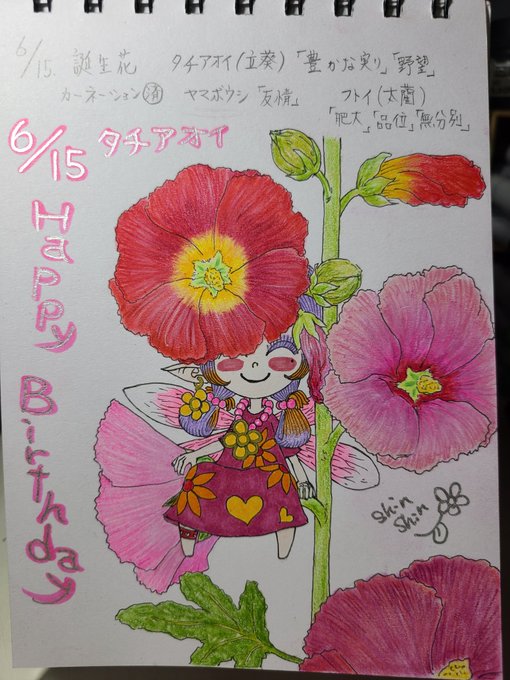 6/15. 誕生花 タチアオイ(立葵)「豊かな実り」「野望」
カーネーション済 ヤマボウシ「友情」 フトイ(太藺)
「肥大」「品位」「無分別」
6/15 タチアオイ
Happy Birthday
Shin
Shin